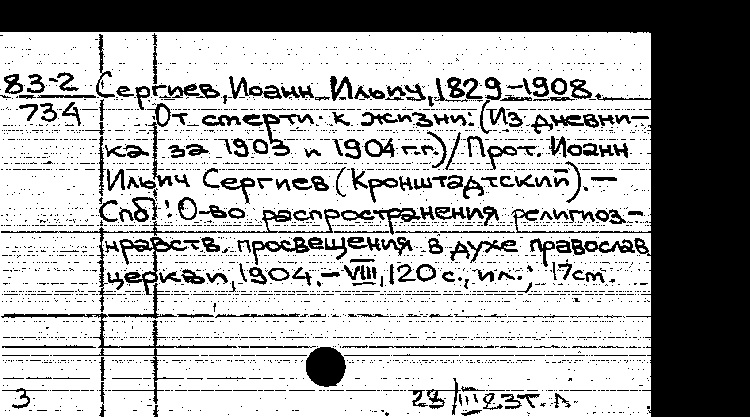 83-2 Сергиев, Иоанн Ильич, 1829-1908.
734 От смерти к жизни: (Из дневни-
ка за 1903 и 1904 г.г.) / Прот. Иоанн
Ильич Сергиев (Кронштадтский). —
Спб : О-во распространения религиоз-
нравств. просвещения в духе православ
церкви, 1904. - VIII, 120 с., ил.; 17 см.
3 23/III 83г.